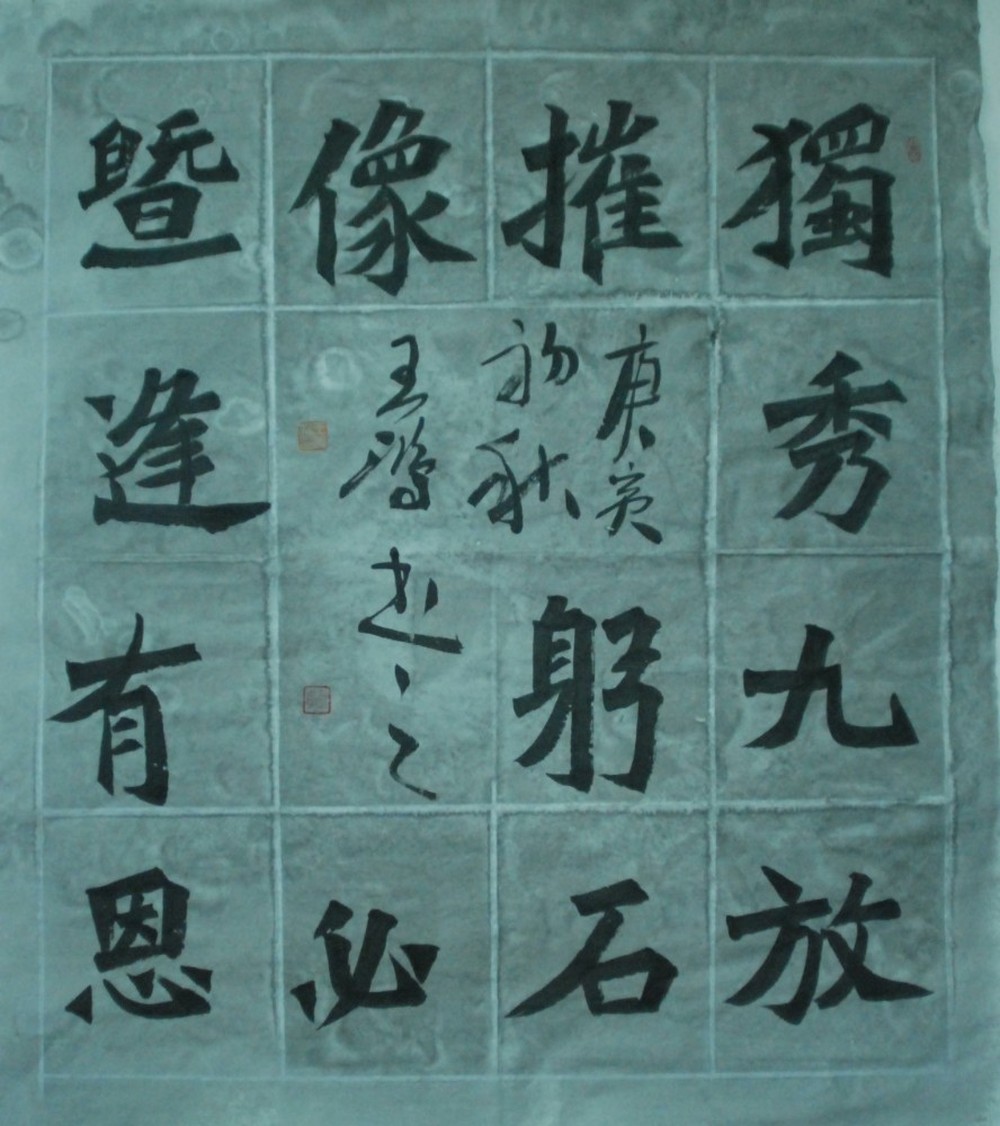 獨秀九放
摧躬石
像必
暨逢有恩
庚寅
初秋
王